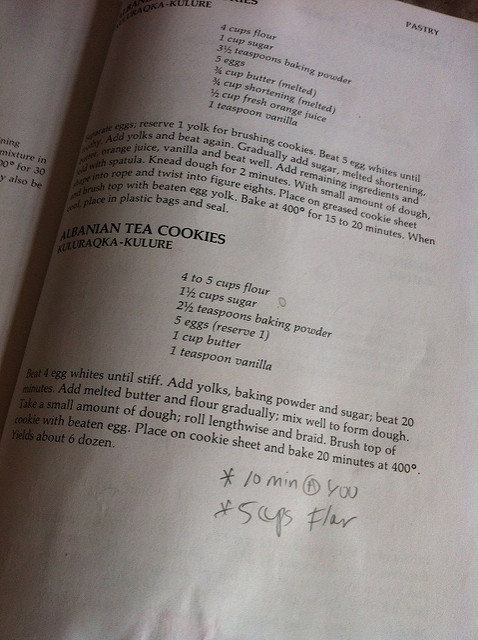 PASTRY
KULURAQKA-KULURE
4 cups flour
1 cup sugar
3½ teaspoons baking powder
5 eggs
¾ cup butter (melted)
¾ cup shortening (melted)
½ cup fresh orange juice
1 teaspoon vanilla
eggs; reserve 1 yolk for brushing cookies. Beat 5 egg whites until
Add yolks and beat again. Gradually add sugar, melted shortening,
orange juice, vanilla and beat well. Add remaining ingredients and
with spatula. Knead dough for 2 minutes. With small amount of dough,
into rope and twist into figure eights. Place on greased cookie sheet
brush top with beaten egg yolk. Bake at 400° for 15 to 20 minutes. When
cool, place in plastic bags and seal.
ALBANIAN TEA COOKIES
KULURAQKA-KULURE
4 to 5 cups flour
1½ cups sugar
2½ teaspoons baking powder
5 eggs (reserve 1)
1 cup butter
1 teaspoon vanilla
Beat 4 egg whites until stiff. Add yolks, baking powder and sugar; beat 20
minutes. Add melted butter and flour gradually; mix well to form dough.
Take a small amount of dough; roll lengthwise and braid. Brush top of
cookie with beaten egg. Place on cookie sheet and bake 20 minutes at 400°.
Yields about 6 dozen.
* 10 min
* 5 cups
mixture in
for 30
also be